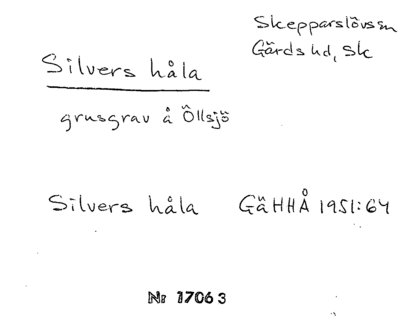 Skepparslövs sn
Gärds hd, Sk
Silvers håla
grusgrav å Öllsjö
Silvers håla GäHHÅ 1951:64
Nr 17063